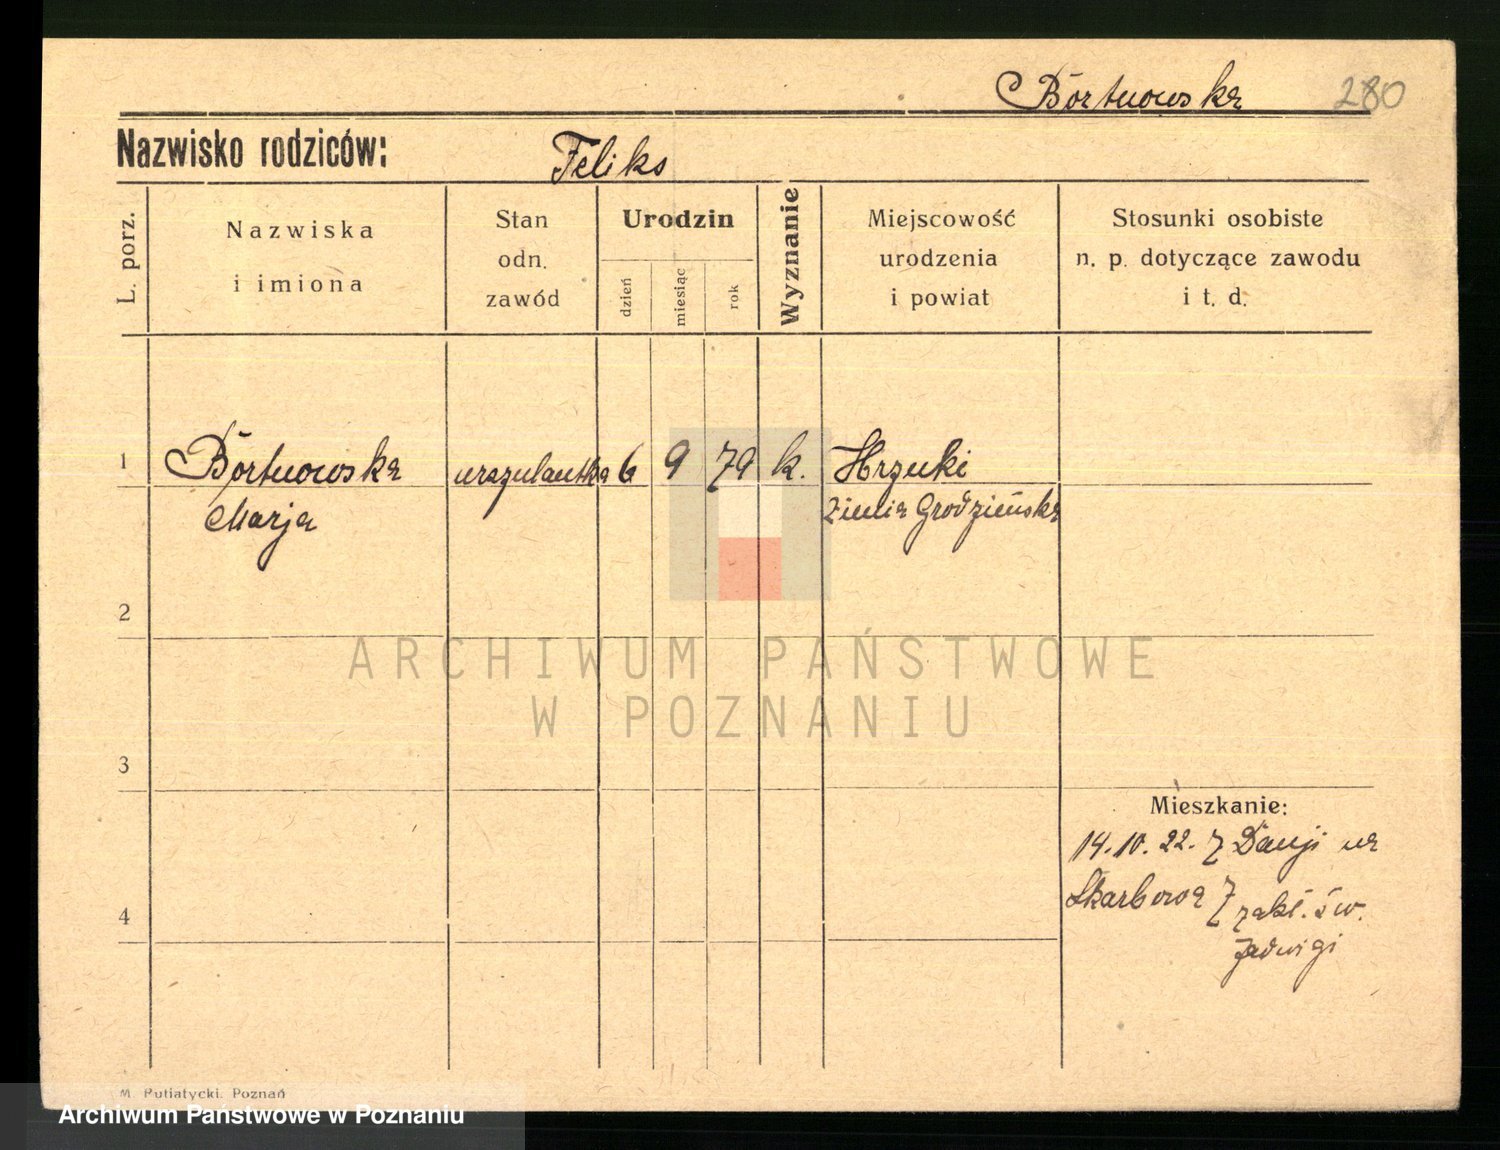 Bortnowska 280
Nazwisko rodziców: Feliks
L. porz.
Nazwiska
i imiona
Stan
odn.
zawód
Urodzin
dzień
miesiąc
rok
Wyznanie
Miejscowość
urodzenia
i powiat
Stosunki osobiste
n. p. dotyczące zawodu
i t. d.
1 Bortnowska urszulantka 6 9 79 k. Hrzuki
Marja Ziemia Grodzieńska
2
ARCHIWUM PAŃSTWOWE
W POZNANIU
3
Mieszkanie:
14.10.22. z Danji na
Skarbowa 7 zakł. św.
Jadwigi
4
M. Putiatycki, Poznań
Archiwum Państwowe w Poznaniu